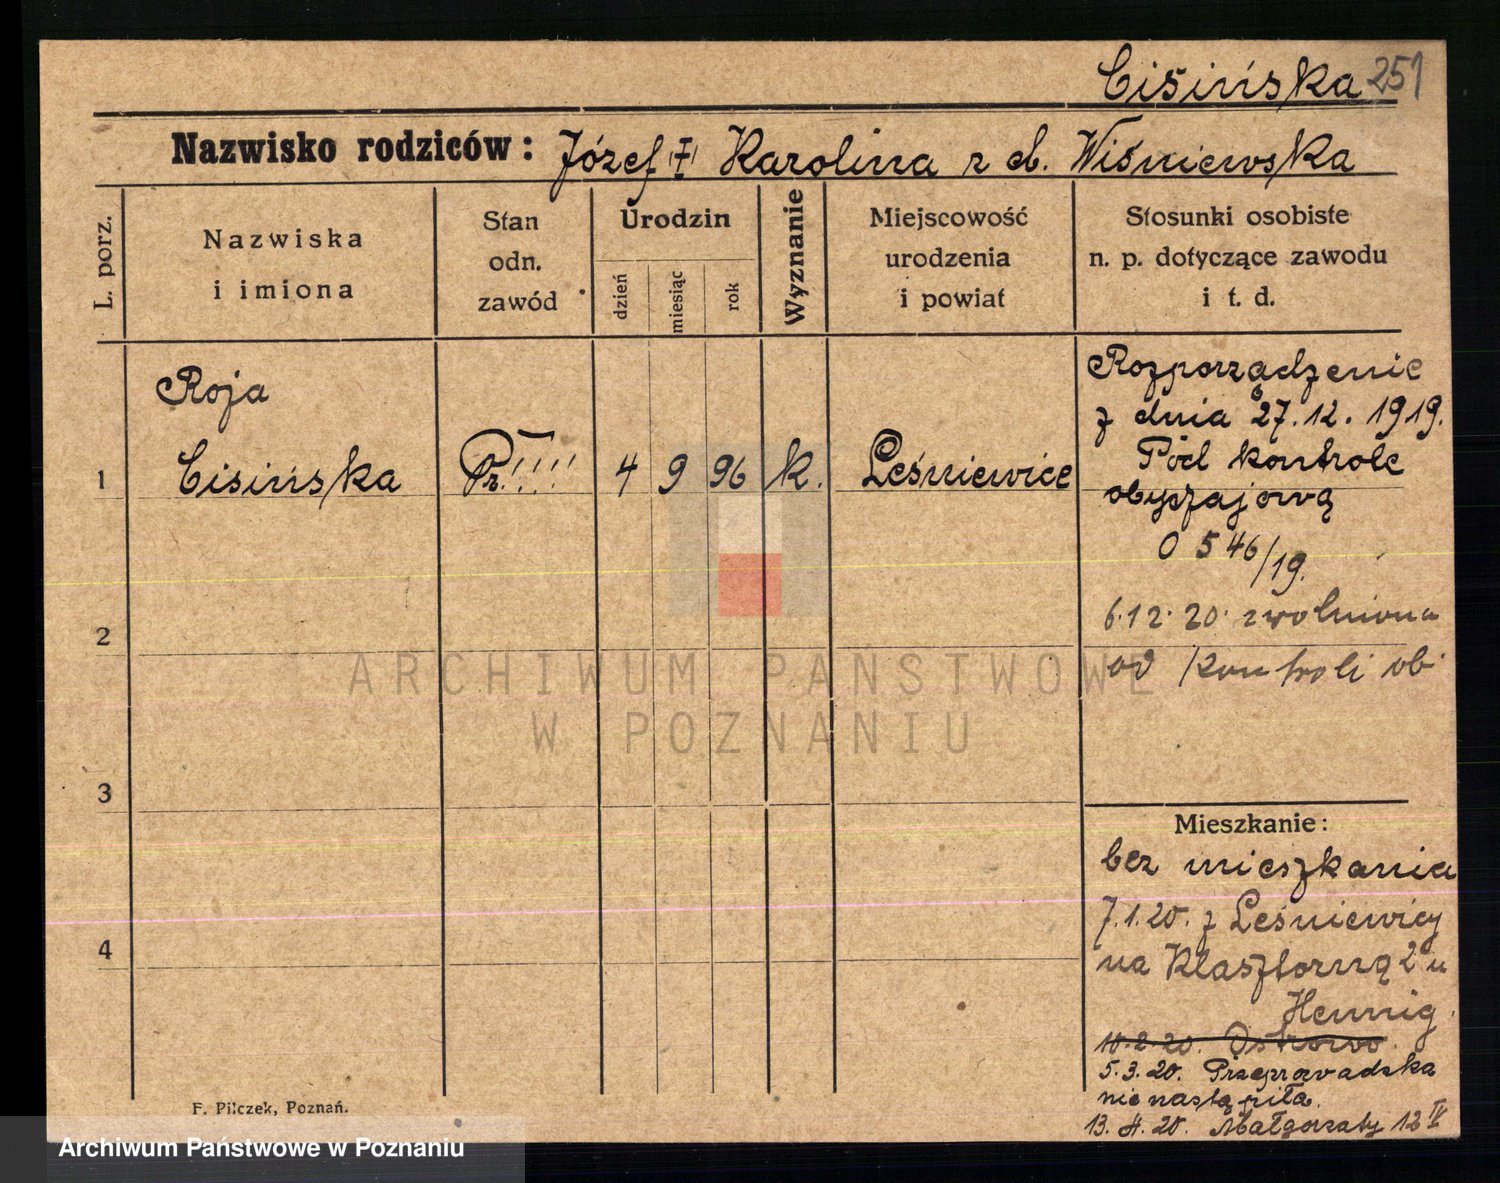 Cisińska 251
Nazwisko rodziców: Józef Karolina z d. Wiśniewska
L. porz.
Nazwiska
i imiona
Stan
odn.
zawód
Urodzin
dzień
miesiąc
rok
Wyznanie
Miejscowość
urodzenia
i powiat
Stosunki osobiste
n. p. dotyczące zawodu
i t. d.
Roja
1 Cisińska Pr.!!!! 4 9 96 k. Leśniewice
Rozporządzenie
z dnia 27.12.1919.
Pod kontrolę
obyczajową
O 546/19.
2
6.12.20. zwolniona
od kontroli ob
3
4
Mieszkanie:
bez mieszkania
7.1.20. z Leśniewicy
na Klasztorną 2 u
Hennig.
10.2.20. Ostrowo.
5.3.20. Przeprowadzka
nie nastąpiła.
13.4.20. Małgorzaty 12 IV
F. Pilczek, Poznań.
ARCHIWUM PAŃSTWOWE
W POZNANIU
Archiwum Państwowe w Poznaniu